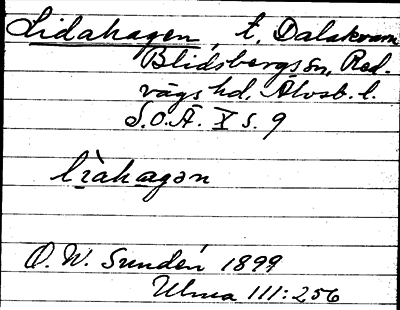 Lidahagen, t. Dalakvarn
Blidsbergs sn, Red-
vägs hd, Älvsb. l.
S.O.Ä. X s. 9
lìahagən
O. W. Sundén 1899
Ulma 111:256